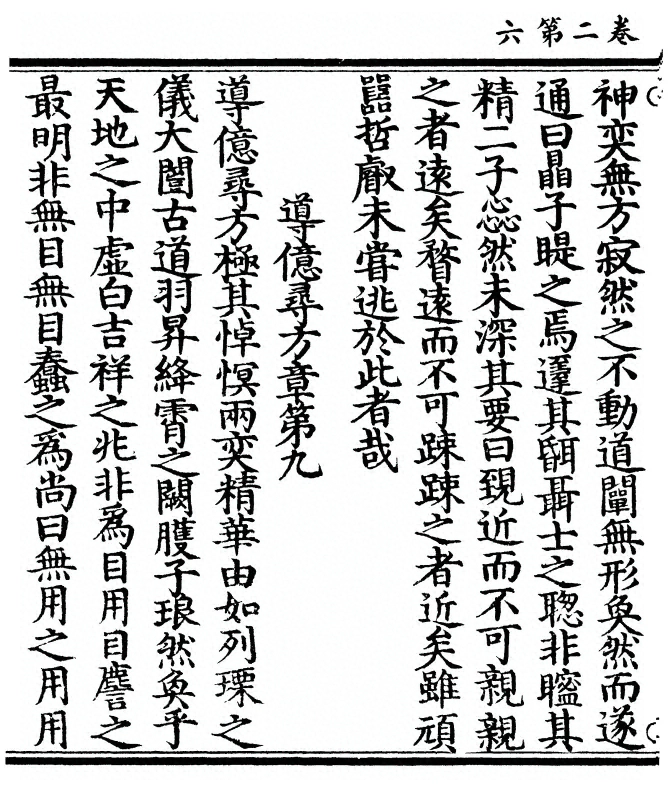 卷二第六
神奕無方寂然之不動道闡無形奐然而遂
通曰晶子睼之焉蓬其聶士之聦非矊其
精二子惢然未深其要曰覞近而不可親親
之者遠矣瞀遠而不可踈踈之者近矣雖頑
嚚哲叡未嘗逃於此者哉
導億尋方章第九
導億尋方極其悼惈兩奕精華由如列瑮之
儀大闓古道羽昇絳霄之闕臒子琅然奐乎
天地之中虛白吉祥之兆非為目用目譍之
最明非無目無目蠢之為尚曰無用之用用